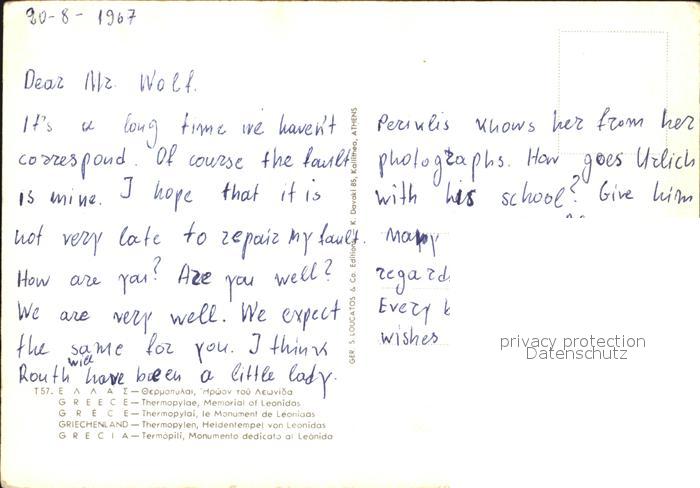 20-8-1967
Dear Mr. Wolf.
It's a long time we haven't
correspond. Of course the fault
is mine. I hope that it is
not very late to repair my fault.
How are you? Are you well?
We are very well. We expect
the same for you. I think
Routh will have been a little lady.
T57. ΕΛΛΑΣ — Θερμοπύλαι, Ἡρῷον τοῦ Λεωνίδα
GREECE — Thermopylae, Memorial of Leonidas
GRÈCE — Thermopylai, le Monument de Léonidas
GRIECHENLAND — Thermopylen, Heldentempel von Leonidas
GRECIA — Termópili, Monumento dedicato al Leónida
GER. S. LOUCATOS & Co. Editions — K. Davaki 85, Kallithea, ATHENS
Periklis knows her from her
photographs. How goes Urlich
with his school? Give him
Many
regard
Every
wishes
privacy protection
Datenschutz